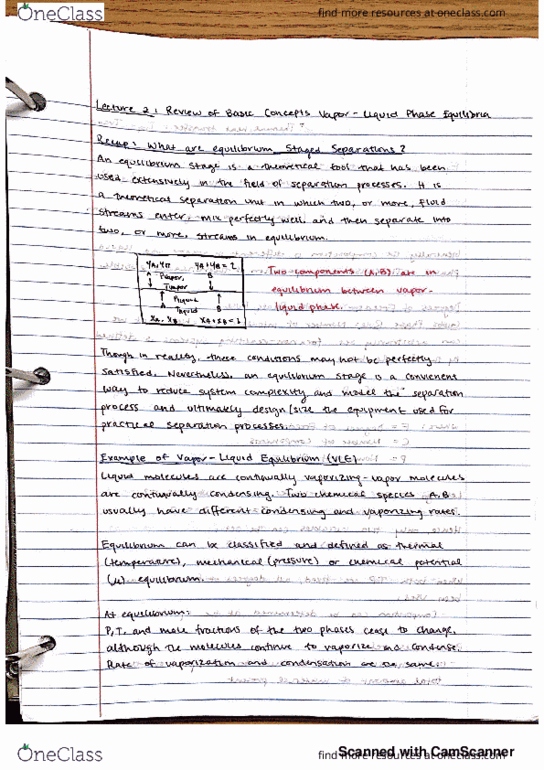 OneClass
find more resources at oneclass.com
Lecture 2: Review of Basic Concepts Vapor-Liquid Phase Equilibria
Recap: What are equilibrium Staged Separations?
An equilibrium stage is a theoretical tool that has been
used extensively in the field of separation processes. It is
a theoretical separation unit in which two, or more, fluid
streams enter, mix perfectly well, and then separate into
two, or more, streams in equilibrium.
yA, yB yA+yB = 1
A B
Pvapor,
Tvapor
Pliquid
Tliquid
A B
xA, xB xA+xB=1
Two components (A,B) are in
equilibrium between vapor-
liquid phase.
Though in reality, these conditions may not be perfectly
satisfied. Nevertheless, an equilibrium stage is a convienent
way to reduce system complexity and model the separation
process and ultimately design/size the equipment used for
practical separation processes.
Example of Vapor-Liquid Equilibrium (VLE)
Liquid molecules are continually vaporizing-vapor molecules
are continually condensing. Two chemical species A,B
usually have different condensing and vaporizing rates.
Equilibrium can be classified and defined as thermal
(temperature), mechanical (pressure) or chemical potential
(μ) equilibrium.
At equilibrium:
P,T, and mole fractions of the two phases cease to change,
although the molecules continue to vaporize and condense.
Rate of vaporization and condensation are the same.
OneClass
find more resources at oneclass.com
Scanned with CamScanner